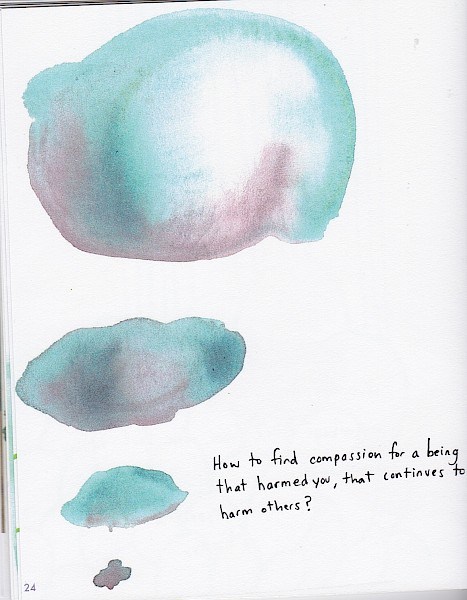 How to find compassion for a being
that harmed you, that continues to
harm others?
24